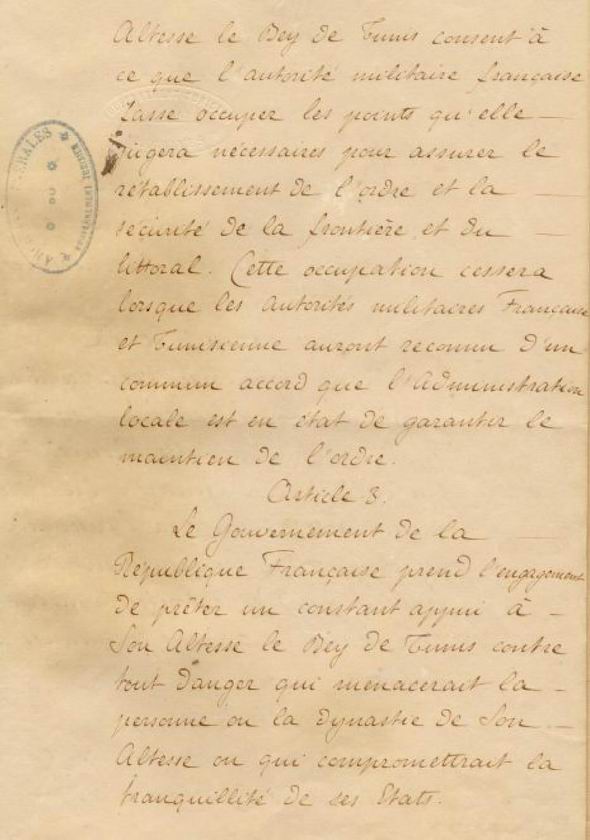 Altesse le Bey de Tunis consent à
ce que l'autorité militaire française
fasse occuper les points qu'elle
jugera nécessaires pour assurer le
rétablissement de l'ordre et la
sécurité de la frontière et du
littoral. Cette occupation cessera
lorsque les autorités militaires Française
et Tunisienne auront reconnu d'un
commun accord que l'Administration
locale est en état de garantir le
maintien de l'ordre.
Article 3.
Le Gouvernement de la
République Française prend l'engagement
de prêter un constant appui à
Son Altesse le Bey de Tunis contre
tout danger qui menacerait la
personne ou la dynastie de Son
Altesse ou qui compromettrait la
tranquillité de ses Etats.